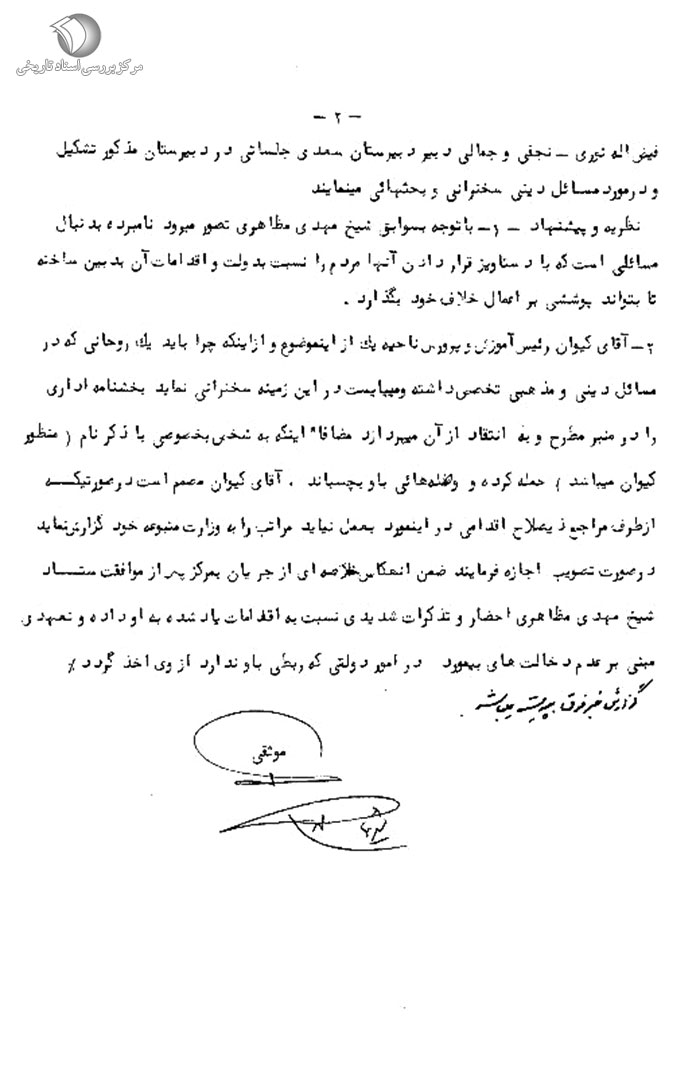 مرکز بررسی اسناد تاریخی
- ۲ -
فیض اله نوری - نجفی و جمالی دبیر دبیرستان سعدی جلساتی در دبیرستان مذکور تشکیل
و در مورد مسائل دینی سخنرانی و بحثهائی مینمایند
نظریه و پیشنهاد - ۱- با توجه بسوابق شیخ مهدی مظاهری تصور میرود نامبرده بدنبال
مسائلی است که با دستاویز قرار دادن آنها مردم را نسبت بدولت و اقدامات آن بدبین ساخته
تا بتواند پوششی بر اعمال خلاف خود بگذارد .
۲- آقای کیوان رئیس آموزش و پرورش ناحیه یک از اینموضوع و از اینکه چرا باید یک روحانی که در
مسائل دینی و مذهبی تخصصی داشته و میبایست در این زمینه سخنرانی نماید بخشنامه اداری
را در منبر مطرح و به انتقاد از آن میپردازد مضافا" اینکه به شخص بخصوصی با ذکر نام ( منظور
کیوان میباشد ) حمله کرده و وصله‌هائی باو بچسباند . آقای کیوان مصمم است در صورتیکه
از طرف مراجع ذیصلاح اقدامی در اینمورد بعمل نیاید مراتب را به وزارت متبوعه خود گزارش نماید
در صورت تصویب اجازه فرمایند ضمن انعکاس خلاصه ای از جریان بمرکز پس از موافقت ستاد
شیخ مهدی مظاهری احضار و تذکرات شدیدی نسبت به اقدامات یاد شده به او داده و تعهدی
مبنی بر عدم دخالت های بیمورد در امور دولتی که ربطی باو ندارد از وی اخذ گردد ٪
گزارش خبر فوق بپیوست میباشد
موثقی